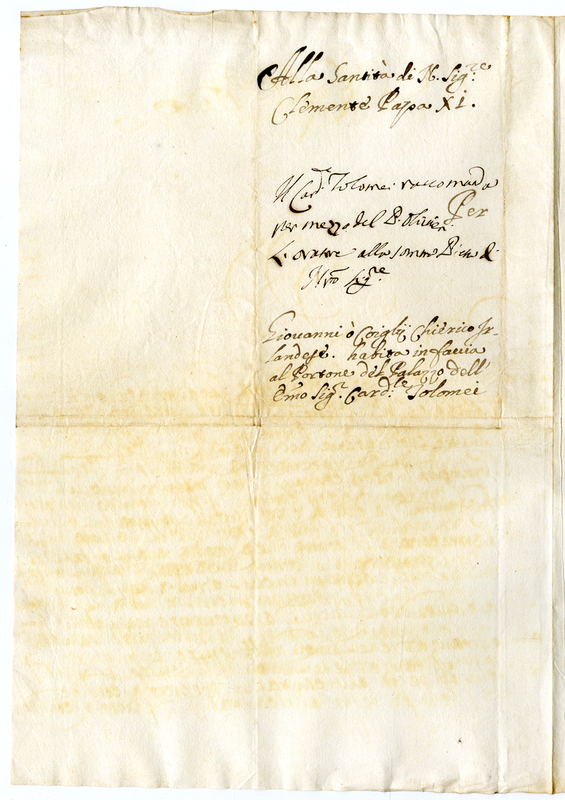 Alla Santità di N. Sig.re
Clemente Papa XI.
Il Card.e Tolomei raccomanda
per mezzo del P.
Per
L'oratore alla somma di
Nro Sig.re
Giovanni ò Coigly Chierico Ir-
landese. habita in faccia
al Portone del Palazzo dell'
Emo Sig.r Card.le Tolomei